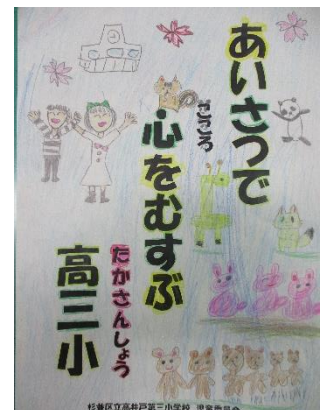 あいさつで
こころ
心をむすぶ
たかさんしょう
高三小
杉並区立高井戸第三小学校 児童委員会